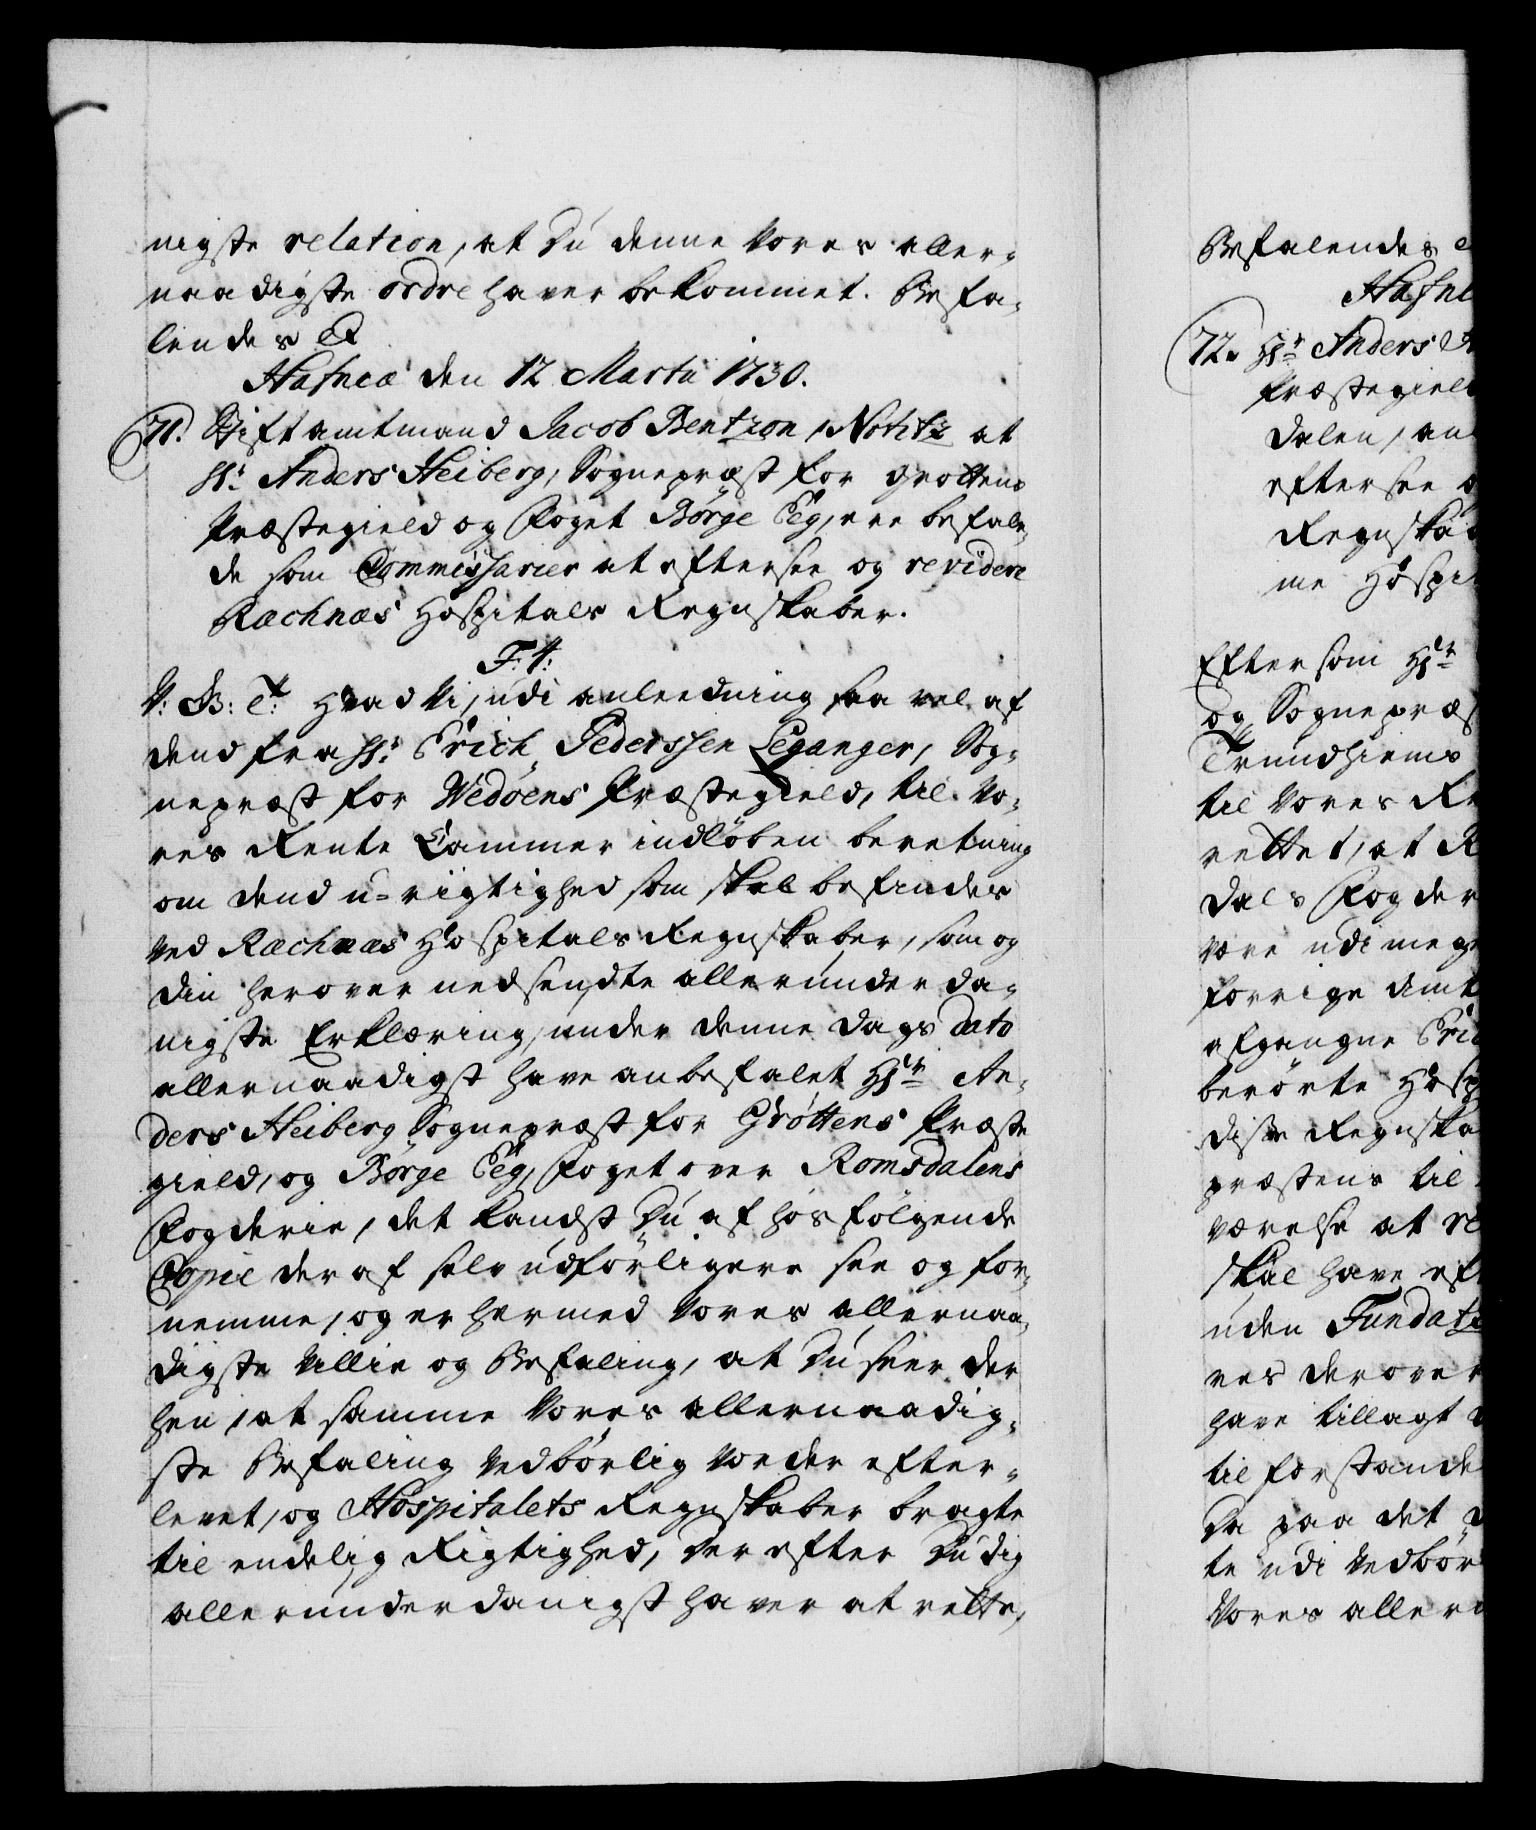 nigste relation, at Du denne Vores aller-
naadigste ordre haver bekommet. Befa-
lendes &
Hafniæ den 12 Martii 1730.
71. Stiftamtmand Jacob Bentzon, Notitz at
Hr. Anders Heiberg, Sognepræst for Grøttens
Præstegield og Foget Børge Eeg, ere befale-
de som Commissarier at eftersee og revidere
Ræchnæs Hospitals Regnskaber.
F: 4:
V: G: T: Hvad Vi, udi anleedning saa vel af
dend fra Hr. Erich Pederssen Leganger, Sog-
nepræst for Wedøens Præstegield, til Vo-
res Rente Cammer indløben beretning
om dend u-rigtighed som skal befindes
ved Rachnæs Hospitals Regnskaber, som og
din herover nedsendte allerunderda-
nigste Erklæring, under denne Dags Dato
allernaadigst have anbefalet Hr. An-
ders Heiberg Sognepræst for Grøttens Præste
gield, og Børge Eeg, Foget over Romsdalens
Fogderie, det kandst Du af hosfølgende
Copie deraf selv udførligere see og for-
nemme, og er hermed Vores allernaa-
digste Villie og Befaling, at Du seer der
hen, at samme Vores allernaadig-
ste Befaling vedbørlig vorder efter-
levet, og Hospitalets Regnskaber bragte
til endelig Rigtighed, Der efter Du dig
allerunderdanigst haver at rette,
Befalendes
Hafni
72. Hr. Anders
Præstegield
Dalen, an
eftersee o
Regnskab
me Hospi
Eftersom Hr.
og Sognepræs
Trundhiems
til Vores Re
rettet, at R
dals Fogder
være udi meg
forrige Amt
afgangne Eric
berørte Hosp
disse Regnska
præstens til
værelse at re
skal have eft
uden Fundat
res derover
have tillagt
til forstande
Da paa det
te udi vedbør
Vores aller